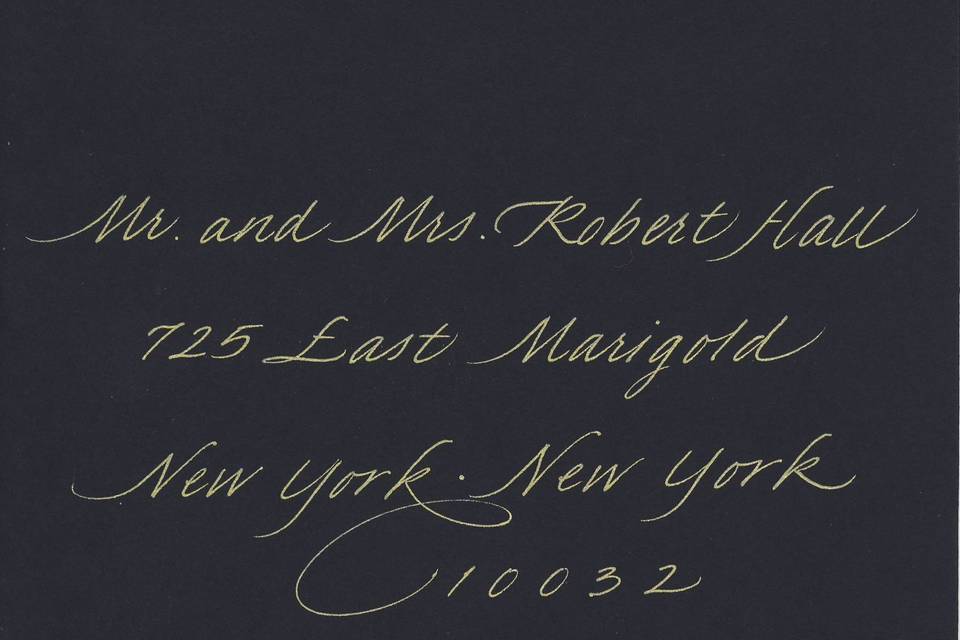 Mr. and Mrs. Robert Hall
725 East Marigold
New York · New York
10032